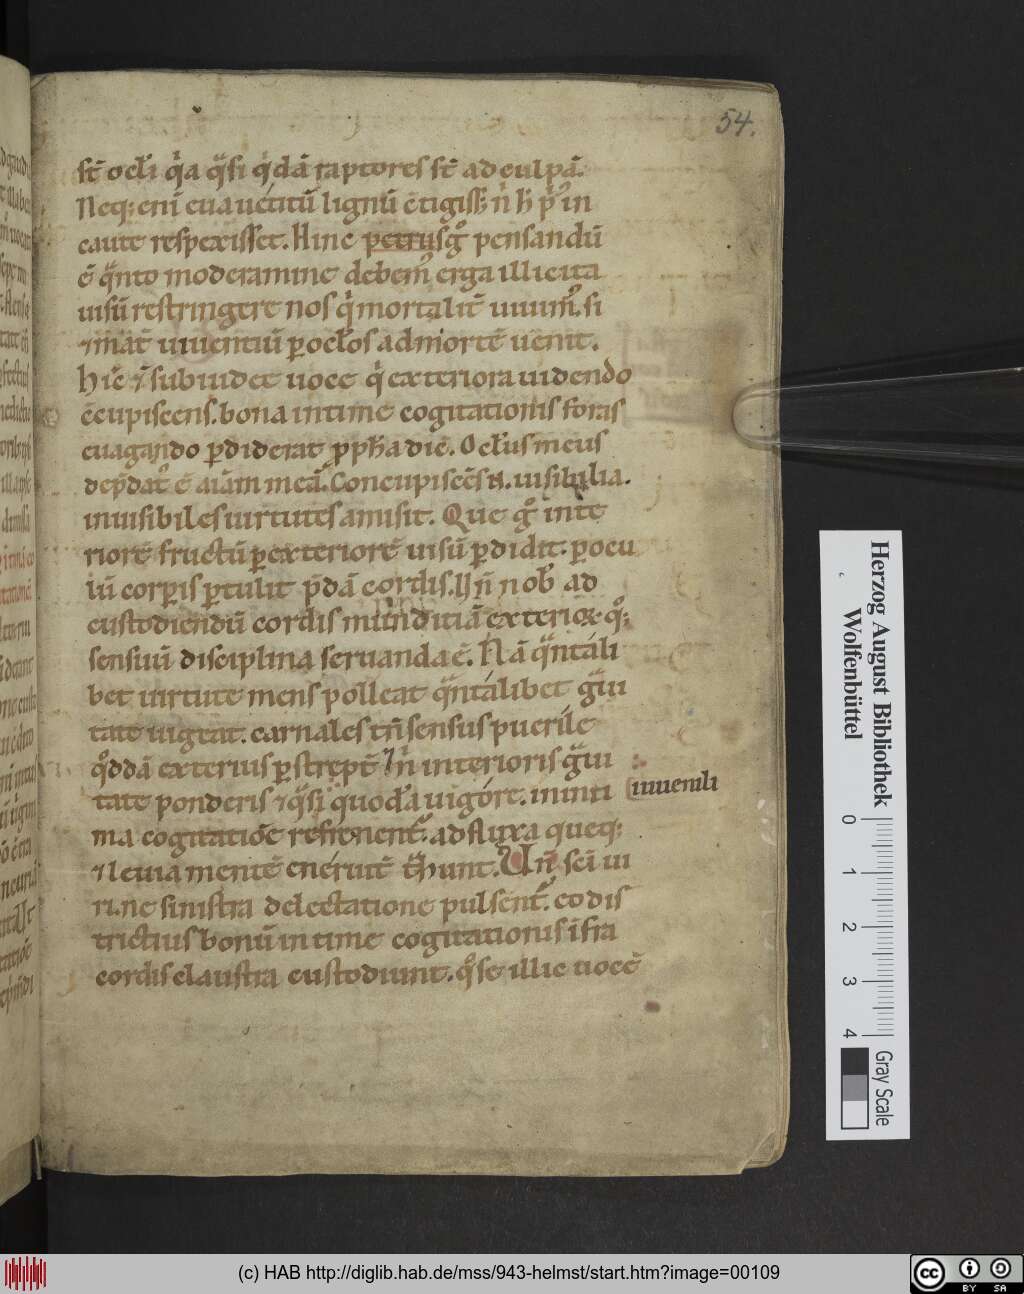 54.
st̄ ocl̄i q̇a q̈si q̇dā raptores st̄ ad culpā.
Neq; eni᷎ eua uetitū lignū c̄tigiss; n̄ h̄ pͥ᷒ in
caute respexisset. Hinc petrus gͦ pensandū
ē q̈nto moderamine debem᷒ erga illicita
uisū restringere nos q̇ mortalit̄ uiuim᷒. si
⁊ mat̄ uiuentiū ꝑ ocl̄os ad mortē uenit.
Hic̄ ⁊ sub iudee uoce q̇ exteriora uidendo
c̄cupiscens. bona intime cogitationis foras
euagando ꝑdiderat ꝓph̄a dic̄. Ocl̄us meus
dep̄dat᷒ ē aīam meā. Concupiscēs n. uisibilia.
inuisibiles uirtutes amisit. Que gͦ inte
riorē fructū ꝑ exteriorē uisū ꝑdidit. ꝑ ocu
lū corꝑis ꝑtulit p̄dā cordis. Hn̄ nob᷒ ad
custodiendū cordis munditiā exterioꝝ qͦ;
sensuū disciplina seruanda ē. Nā q̈ntali
bet uirtute mens polleat q̈ntalibet g̈ui
tate uigeat. carnales tn̄ sensus puerile
qͦddā exterius ꝑstrepūt ⁊ n̄ interioris g̈ui
tate ponderis ⁊ q̈si quodā uigore. iuueni
li
ma cogitatiōe refrenent᷒. ad fluxa queq;
⁊ leuia mentē eneruē t̄hunt. Un̄ sc̄i ui
ri. ne sinistra delectatione pulsent᷒. eo dis
trictius bonū intime cogitationis ī fra
cordis claustra custodiunt. qͦ se illic uocē
Herzog August Bibliothek
Wolfenbüttel
0 1 2 3 4
Gray Scale
(c) HAB http://diglib.hab.de/mss/943-helmst/start.htm?image=00109
cc BY SA